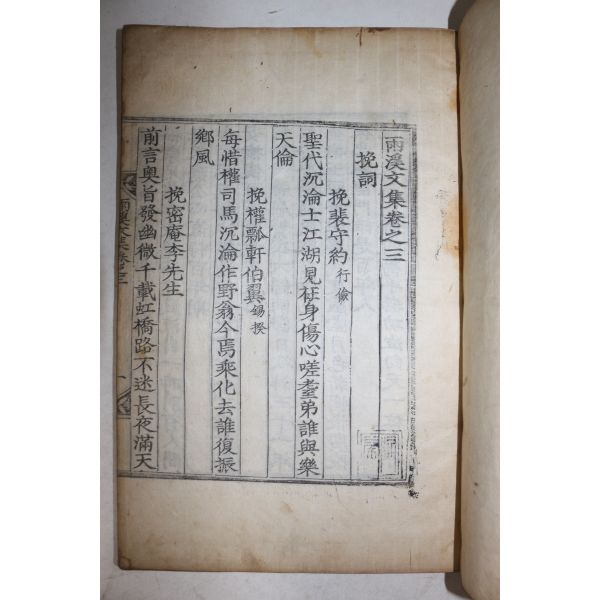 雨溪文集卷之三
挽詞
挽裴守約行儉
聖代沉淪士江湖見在身傷心嗟耋弟誰與樂
天倫
挽權瓢軒伯翼錫揆
每惜權司馬沉淪作野翁今焉乘化去誰復振
鄉風
挽密庵李先生
前言奧旨發幽微千載虹橋路不迷長夜滿天
雨溪文集卷之三
一